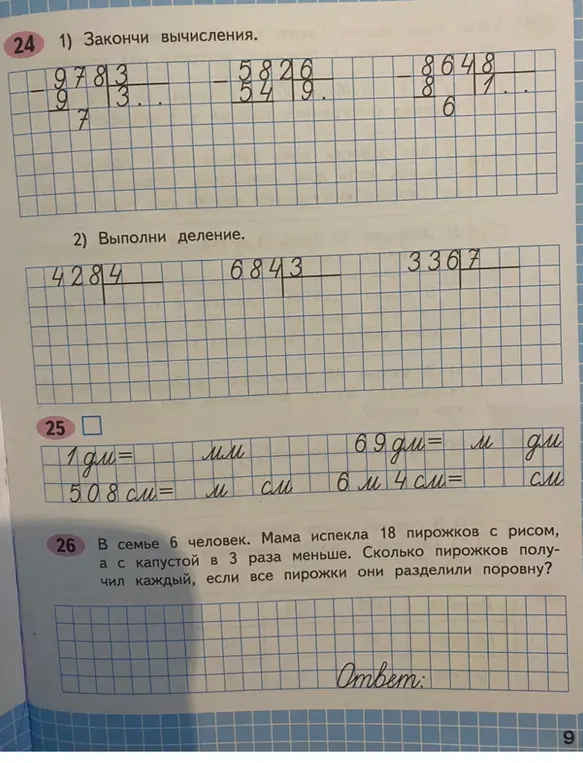 24 1) Закончи вычисления.
− 9 7 8 3 − 5 8 2 6 − 8 6 4 8
9 3 . . 5 4 9 . 8 1 . .
7 6
2) Выполни деление.
4 2 8 4 6 8 4 3 3 3 6 7
25
1 дм= мм 6 9 дм= м дм
5 0 8 см= м см 6 м 4 см= см
26 В семье 6 человек. Мама испекла 18 пирожков с рисом,
а с капустой в 3 раза меньше. Сколько пирожков полу-
чил каждый, если все пирожки они разделили поровну?
Ответ:
9